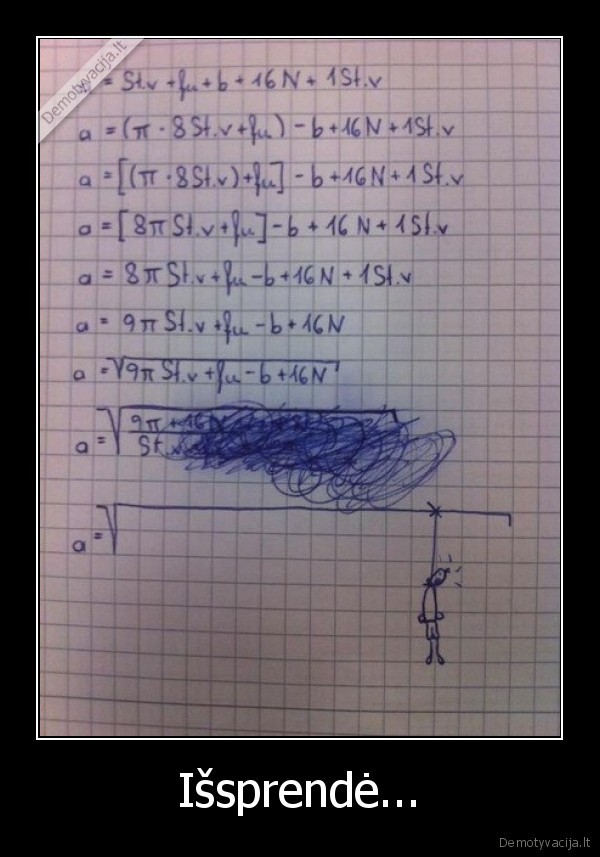 Demotyvacija.lt
= St.v + fu + b + 16 N + 1 St.v
a = (π · 8 St.v + fu) - b + 16 N + 1 St.v
a = [(π · 8 St.v) + fu] - b + 16 N + 1 St.v
a = [8π St.v + fu] - b + 16 N + 1 St.v
a = 8π St.v + fu - b + 16 N + 1 St.v
a = 9π St.v + fu - b + 16 N
a = √9π St.v + fu - b + 16 N
9π + 16 N
a = √
St.v
a = √
Išsprendė...
Demotyvacija.lt